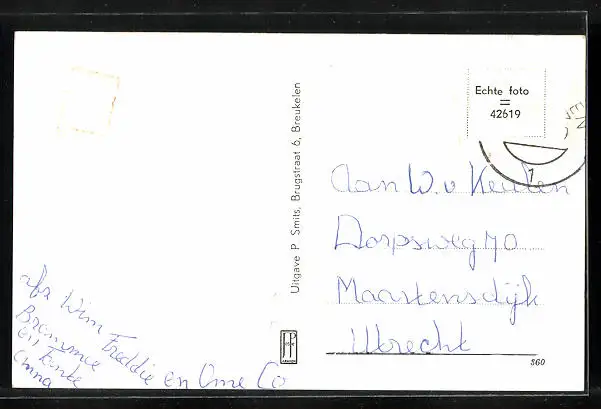 Echte foto
=
42619
EN
1
Uitgave P. Smits, Brugstraat 6, Breukelen
Aan W. v Keulen
Dorpsweg 70
Maartensdijk
Utrecht
560
afz Wim Freddie en Ome Co
en Tante
Anna